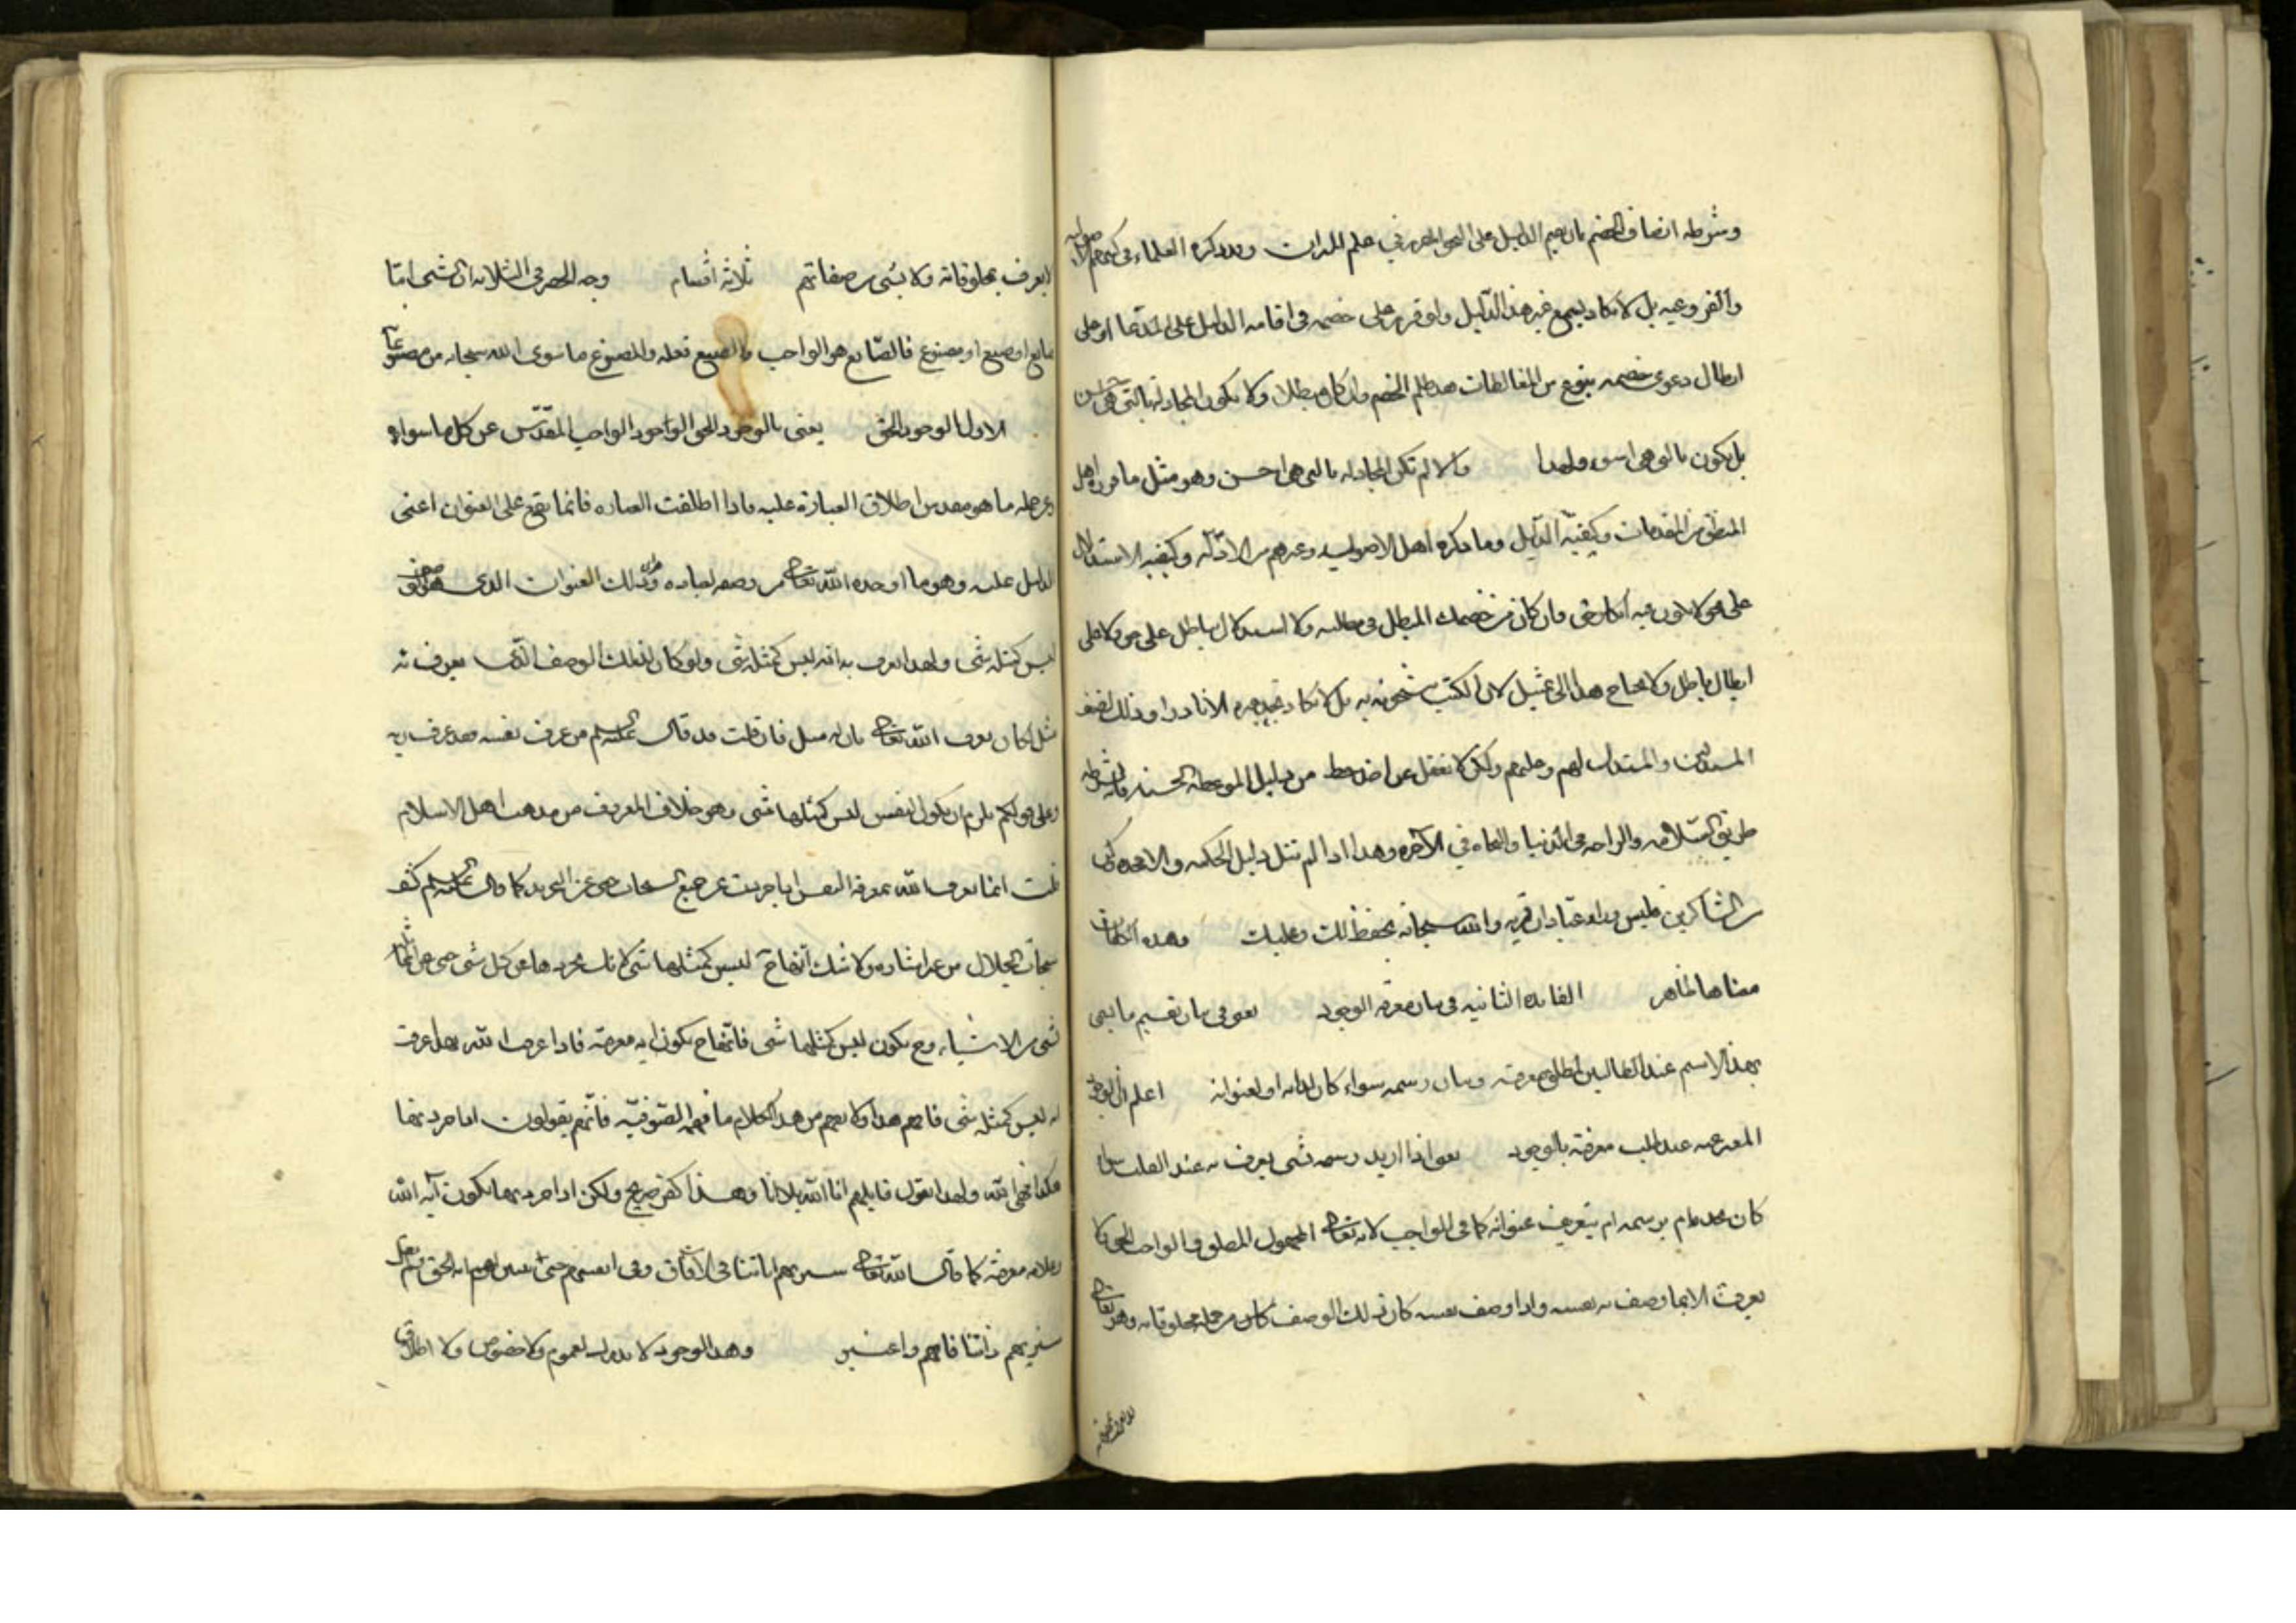 وشرطه انصاف الخصم بان يقيم الدليل على النحو المقرر في علم الميزان وقد ذكره العلماء في كتبهم الاصولية
والفروعيه بل لا يكاد يسمع غير هذا الدليل ولو قرر على خصمه في اقامه الدليل على المدعا او على
ابطال دعوى خصمه بنوع من المغالطات فقد ظلم الخصم وان كان مبطلا ولا يكون المجادلة بالتي هي احسن
بل يكون بالتي هي اسوء ولهذا والا لم تكن المجادله بالتي هي احسن وهو مثل ما قرره اهل
المنطق من المقدمات وكيفيّة الدليل وما ذكره اهل الاصول وغيرهم من الادلّة وكيفيه الاستدلال
على حق ولا يكون فيه انكار حق وان كان من خصمك المبطل في مطلبه ولا استدلال بباطل على حق ولا على
ابطال باطل ولا يحتاج هذا الى تمثيل لان الكتب مشحونه به بل لا يكاد تجد غيره الا نادرا وذلك لضعف
المستدلين والمستدل لهم وعليهم ولكن لا تغفل عن اخذ حظ من دليل الموعظة الحسنه فانه
طريق السّلامه والراحه في الدنيا والنجاه في الآخره وهذا اذا لم تنل دليل الحكمه والا فخذه وكن
من الشاكرين فليس وراء عبادان قريه والله سبحانه يحفظ لك وعليك وهذه الكلمات
معناها ظاهر الفائده الثانيه في بيان معرفه الوجود يعنى في بيان تقسيم ما يعنى
بهذا الاسم عند الطالبين لمطلق معرفته وبيان رسمه سواء كان لذاته او لعنوانه اعلم ان الوجود
المعبر عنه عند طلب معرفته بالوجود يعنى اذا اريد رسمه بشى يعرف به عند الطلب سواء
كان بحد تام برسمه ام بتعريف عنوانه كما في الواجب لانه تعالى المجهول المطلق والواجب الحق لا
يعرف الا بما وصف به نفسه واذا وصف نفسه كان ذلك الوصف كان من جمله مخلوقاته وهو تعالى
لا يعرف بمخلوقاته ولا بشى من صفاتهم ثلاثة اقسام وجه الحصر في الثلاثه ان الشى امّا
صانع او صنع او مصنوع فالصّانع هو الواجب والصنع فعله والمصنوع ما سوى الله سبحانه من مصنوعاته
الاول الوجود الحق يعنى بالوجود الحق الوجود الواجب المقدّس عن كل ما سواه
ومن جمله ما هو مقدس اطلاق العبارة عليه فاذا اطلقت العباره فانما يقع على العنوان اعنى
الدليل عليه وهو ما اوجده الله تعالى من وصفه لعباده وذلك العنوان الذى هو الوصف
ليس كمثله شى ولهذا يعرف به انه ليس كمثله شى ولو كان لذلك الوصف الذى يعرف به
مثل لكان يعرف الله تعالى بان له مثل فان قلت قد قال عليه السلم من عرف نفسه فقد عرف ربه
وعلى قولكم يلزم ان يكون النفس ليس كمثلها شى وهو خلاف المعروف من مذهب اهل الاسلام
قلت انما يعرف الله بمعرفه النفس اذا جردت عن جميع السبحات حتى عن التجريد كما قال عليه السلم كشف
سبحات الجلال من غير اشاره ولا شك انها ح ليس كمثلها شى لانك تجردها عن كل شى حتى عن انها
شى من الاشياء وح يكون ليس كمثلها شى فانها ح يكون ايه معرفته فاذا عرفت الله بها عرفت
انه ليس كمثله شى فافهم هذا ولا تفهم من هذا الكلام ما فهمه الصّوفيّه فانهم يقولون اذا جردتها
هكذا فهى الله ولهذا يقول قايلهم انا الله بلا انا وهذا كفر صريح ولكن اذا جردتها يكون آيه الله
وعلامه معرفته كما قال الله تعالى سنريهم اياتنا في الآفاق وفى انفسهم حتى يتبين لهم انه الحق ولم يقل
سنريهم ذاتنا فافهم واعتبر وهذا الوجود لا يدرك بعموم ولا خصوص ولا اطلاق